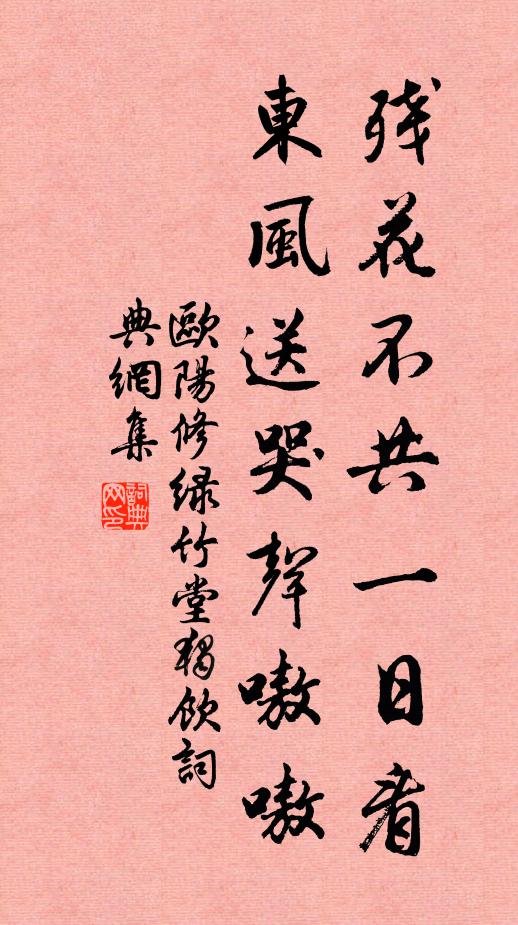 残花不共一日看
東風送哭聲嗷嗷
歐陽修緑竹堂獨飲詞
典網集
詞典
网印